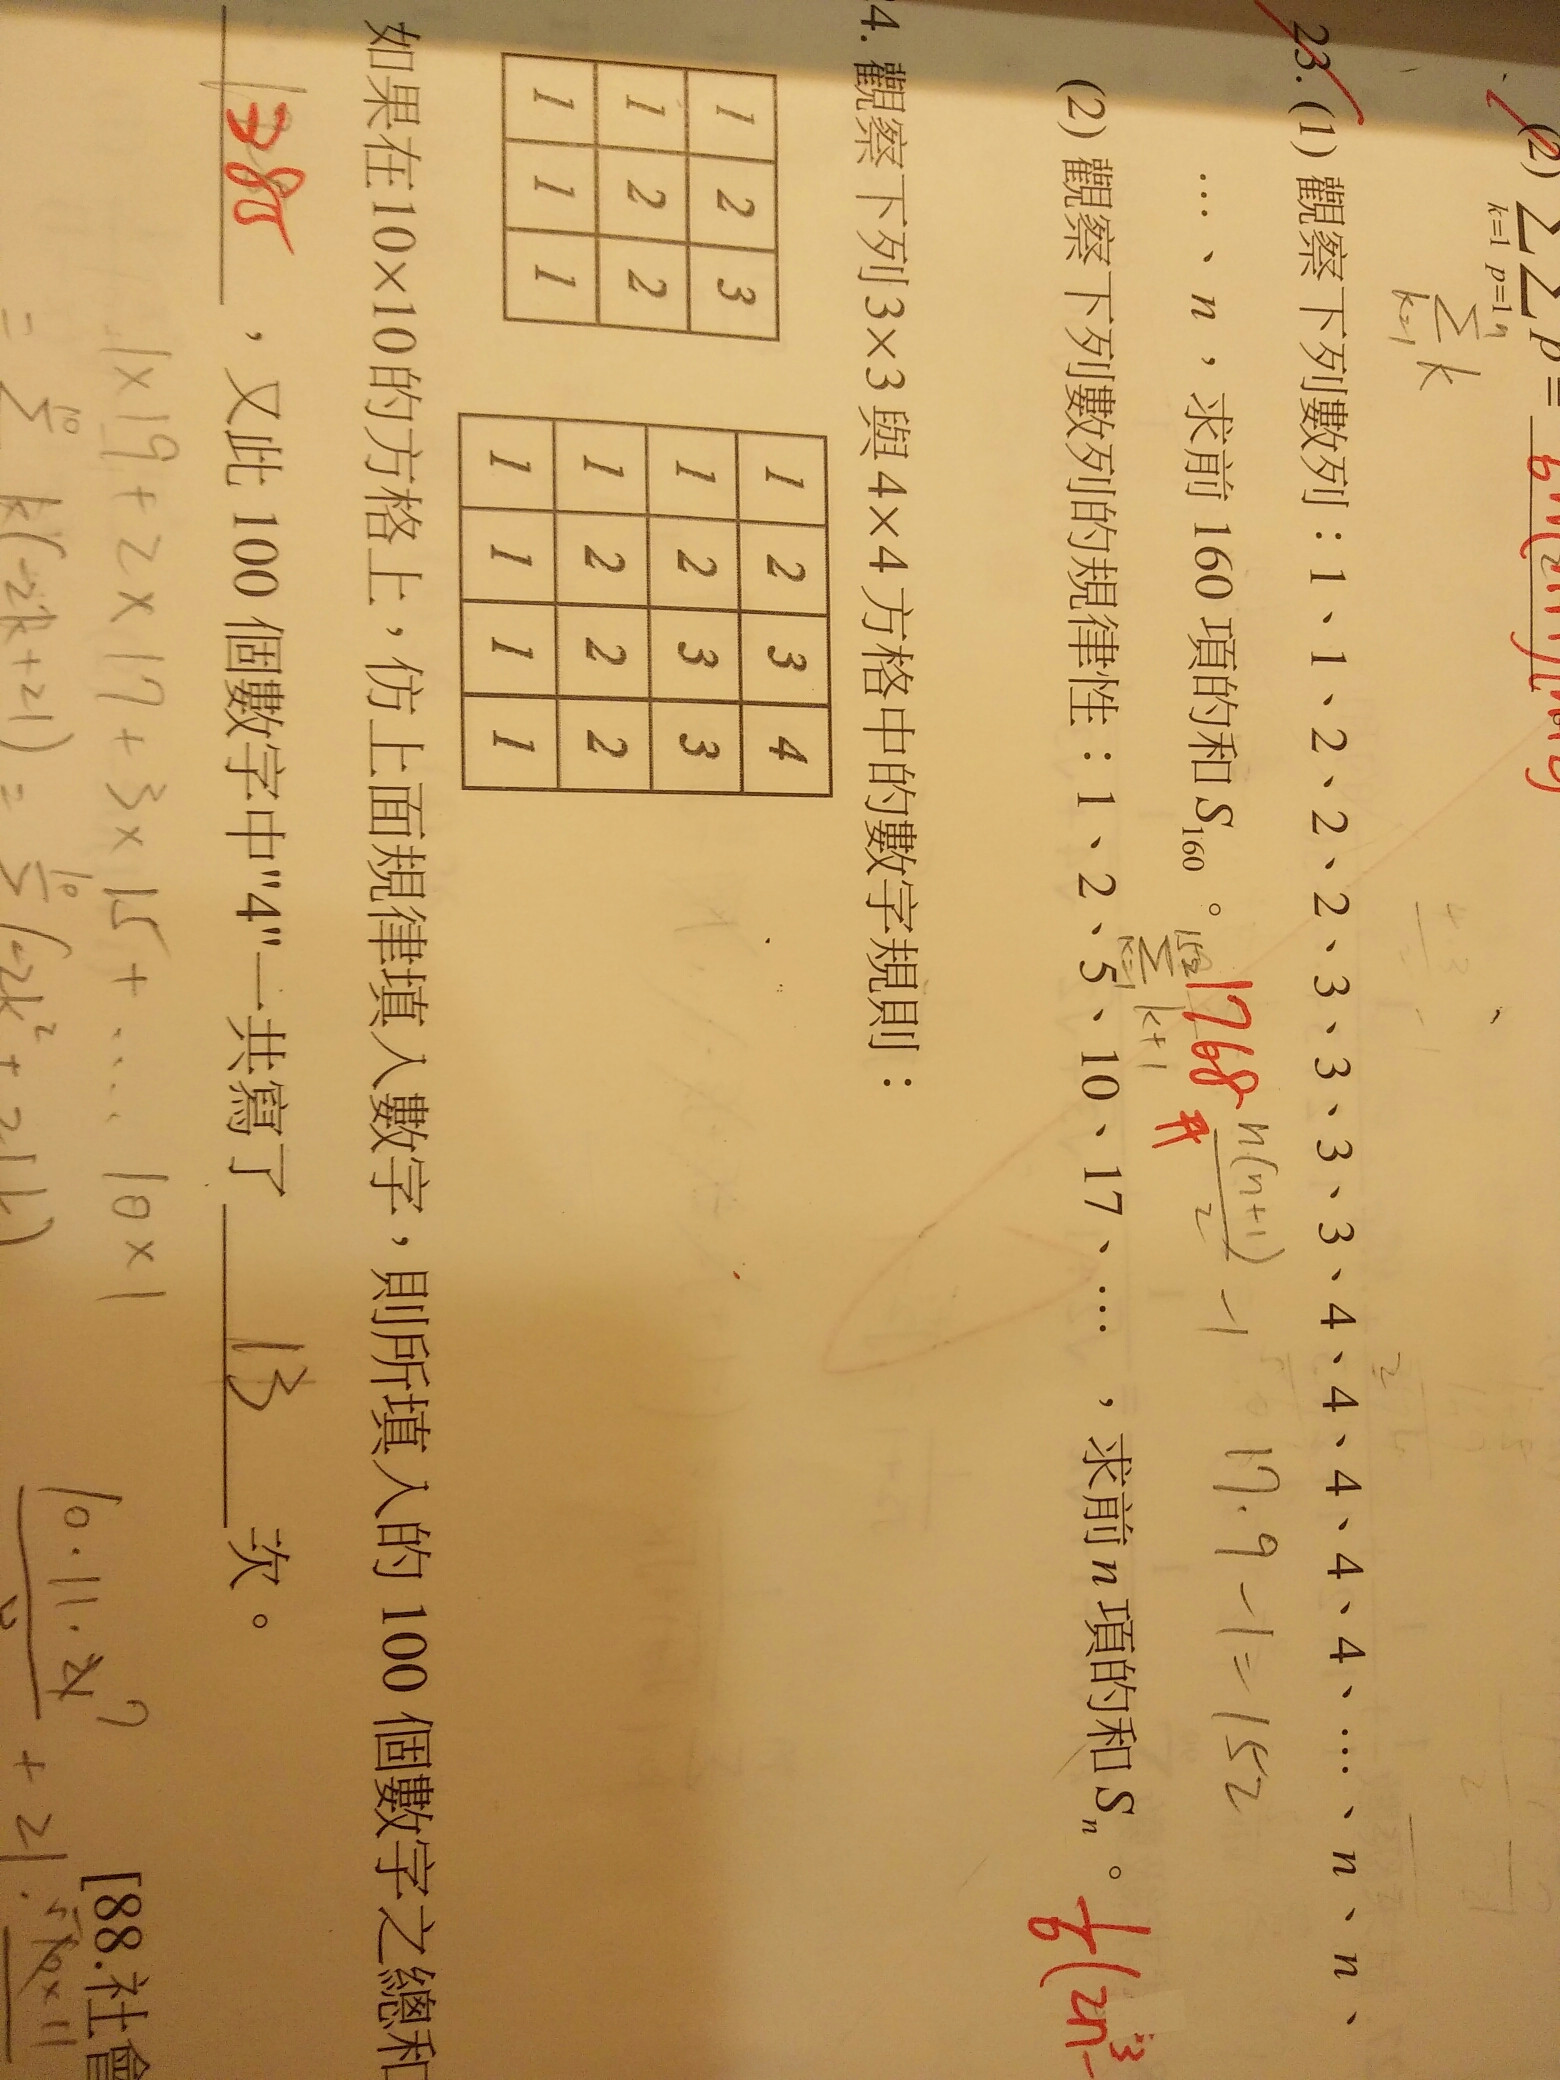 (2) ∑ ∑ p =
k=1 p=1
n
∑ k
k=1
23. (1) 觀察下列數列：1、1、2、2、2、3、3、3、3、4、4、4、4、4、…、n、n、
…、n，求前 160 項的和 S160。
1768
n(n+1)/2 - 1 17.9-1=152
152
∑ k+1
k=1
(2) 觀察下列數列的規律性：1、2、5、10、17、…，求前 n 項的和 Sn。
1/6(2n³-
4. 觀察下列 3×3 與 4×4 方格中的數字規則：
1 2 3
1 2 2
1 1 1
1 2 3 4
1 2 3 3
1 2 2 2
1 1 1 1
如果在 10×10 的方格上，仿上面規律填入數字，則所填入的 100 個數字之總和
385，又此 100 個數字中"4"一共寫了 13 次。
1×19+2×17+3×15+.... 10×1
[88.社會
= ∑ k(-2k+21) = ∑ (-2k²+21k)